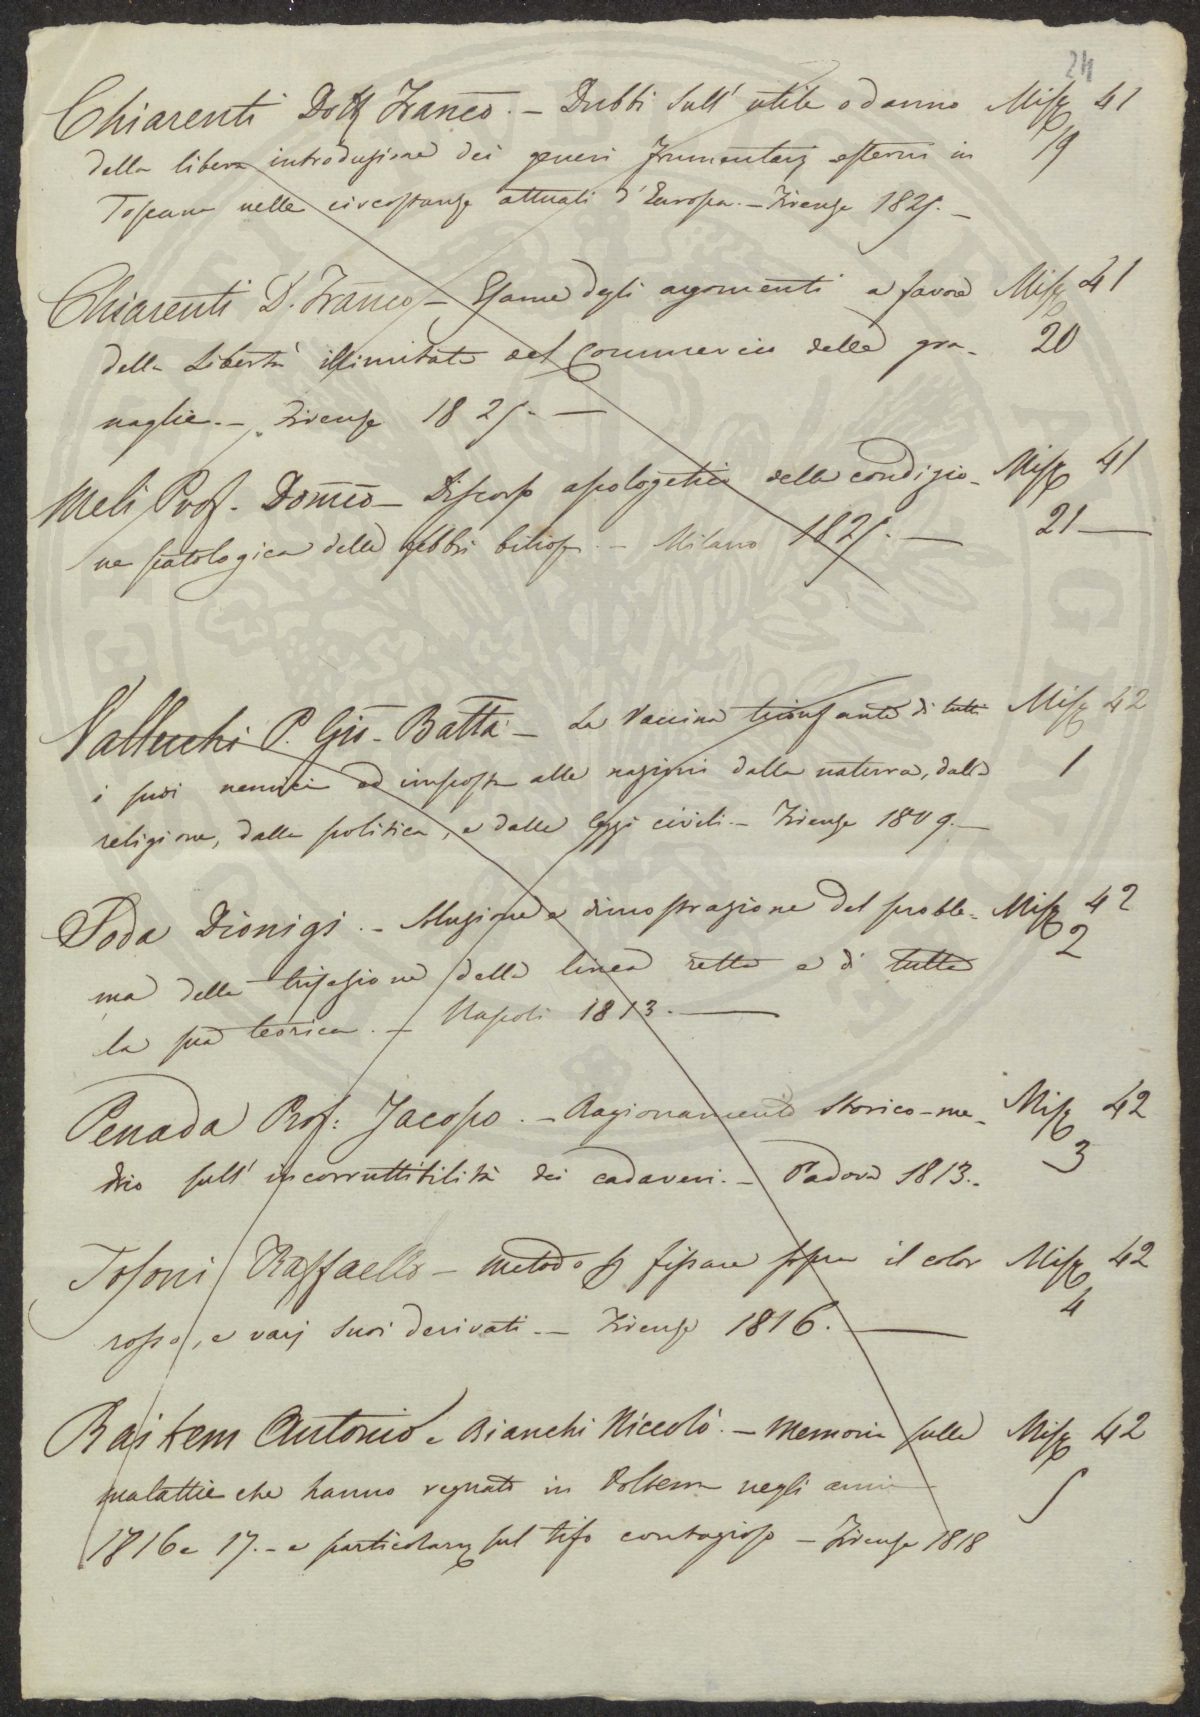 24
Chiarenti Dott Franco. - Dubbi sull' utile o danno Misc 41
della libera introduzione dei generi frumentarj esterni in 19
Toscana nelle circostanze attuali d'Europa. - Firenze 1825. -
Chiarenti D. Franco - Esame degli argomenti a favore Misc 41
della Libertà illimitata del Commercio delle gra- 20
naglie. - Firenze 1825. -
Meli Prof. Domco - Discorso apologetico della condizio- Misc 41
ne patologica delle febbri biliose. - Milano 1825. - 21 -
Vallecchi P. Gio. Batta - La Vaccina trionfante di tutti Misc 42
i suoi nemici ed imposta alle nazioni dalla natura, dalla 1
religione, dalla politica, e dalle leggi civili - Firenze 1809. -
Soda Dionigi. - Soluzione e dimostrazione del proble- Misc 42
2
ma della trisezione della linea retta e di tutta
la sua teorica. - Napoli 1813. -
Penada Prof: Jacopo. - Ragionamento storico-me- Misc 42
dico sull' incorruttibilità dei cadaveri. - Padova 1813. - 3
Tosoni Raffaello - metodo p fissare sopra il color Misc 42
4
rosso, e varj suoi derivati. - Firenze 1816. -
Antonio e Bianchi Niccolò. - Memoria sulle Misc 42
malattie che hanno regnato in Volterra negli anni 5
1816 e 17. - e particolarm sul tifo contagioso - Firenze 1818